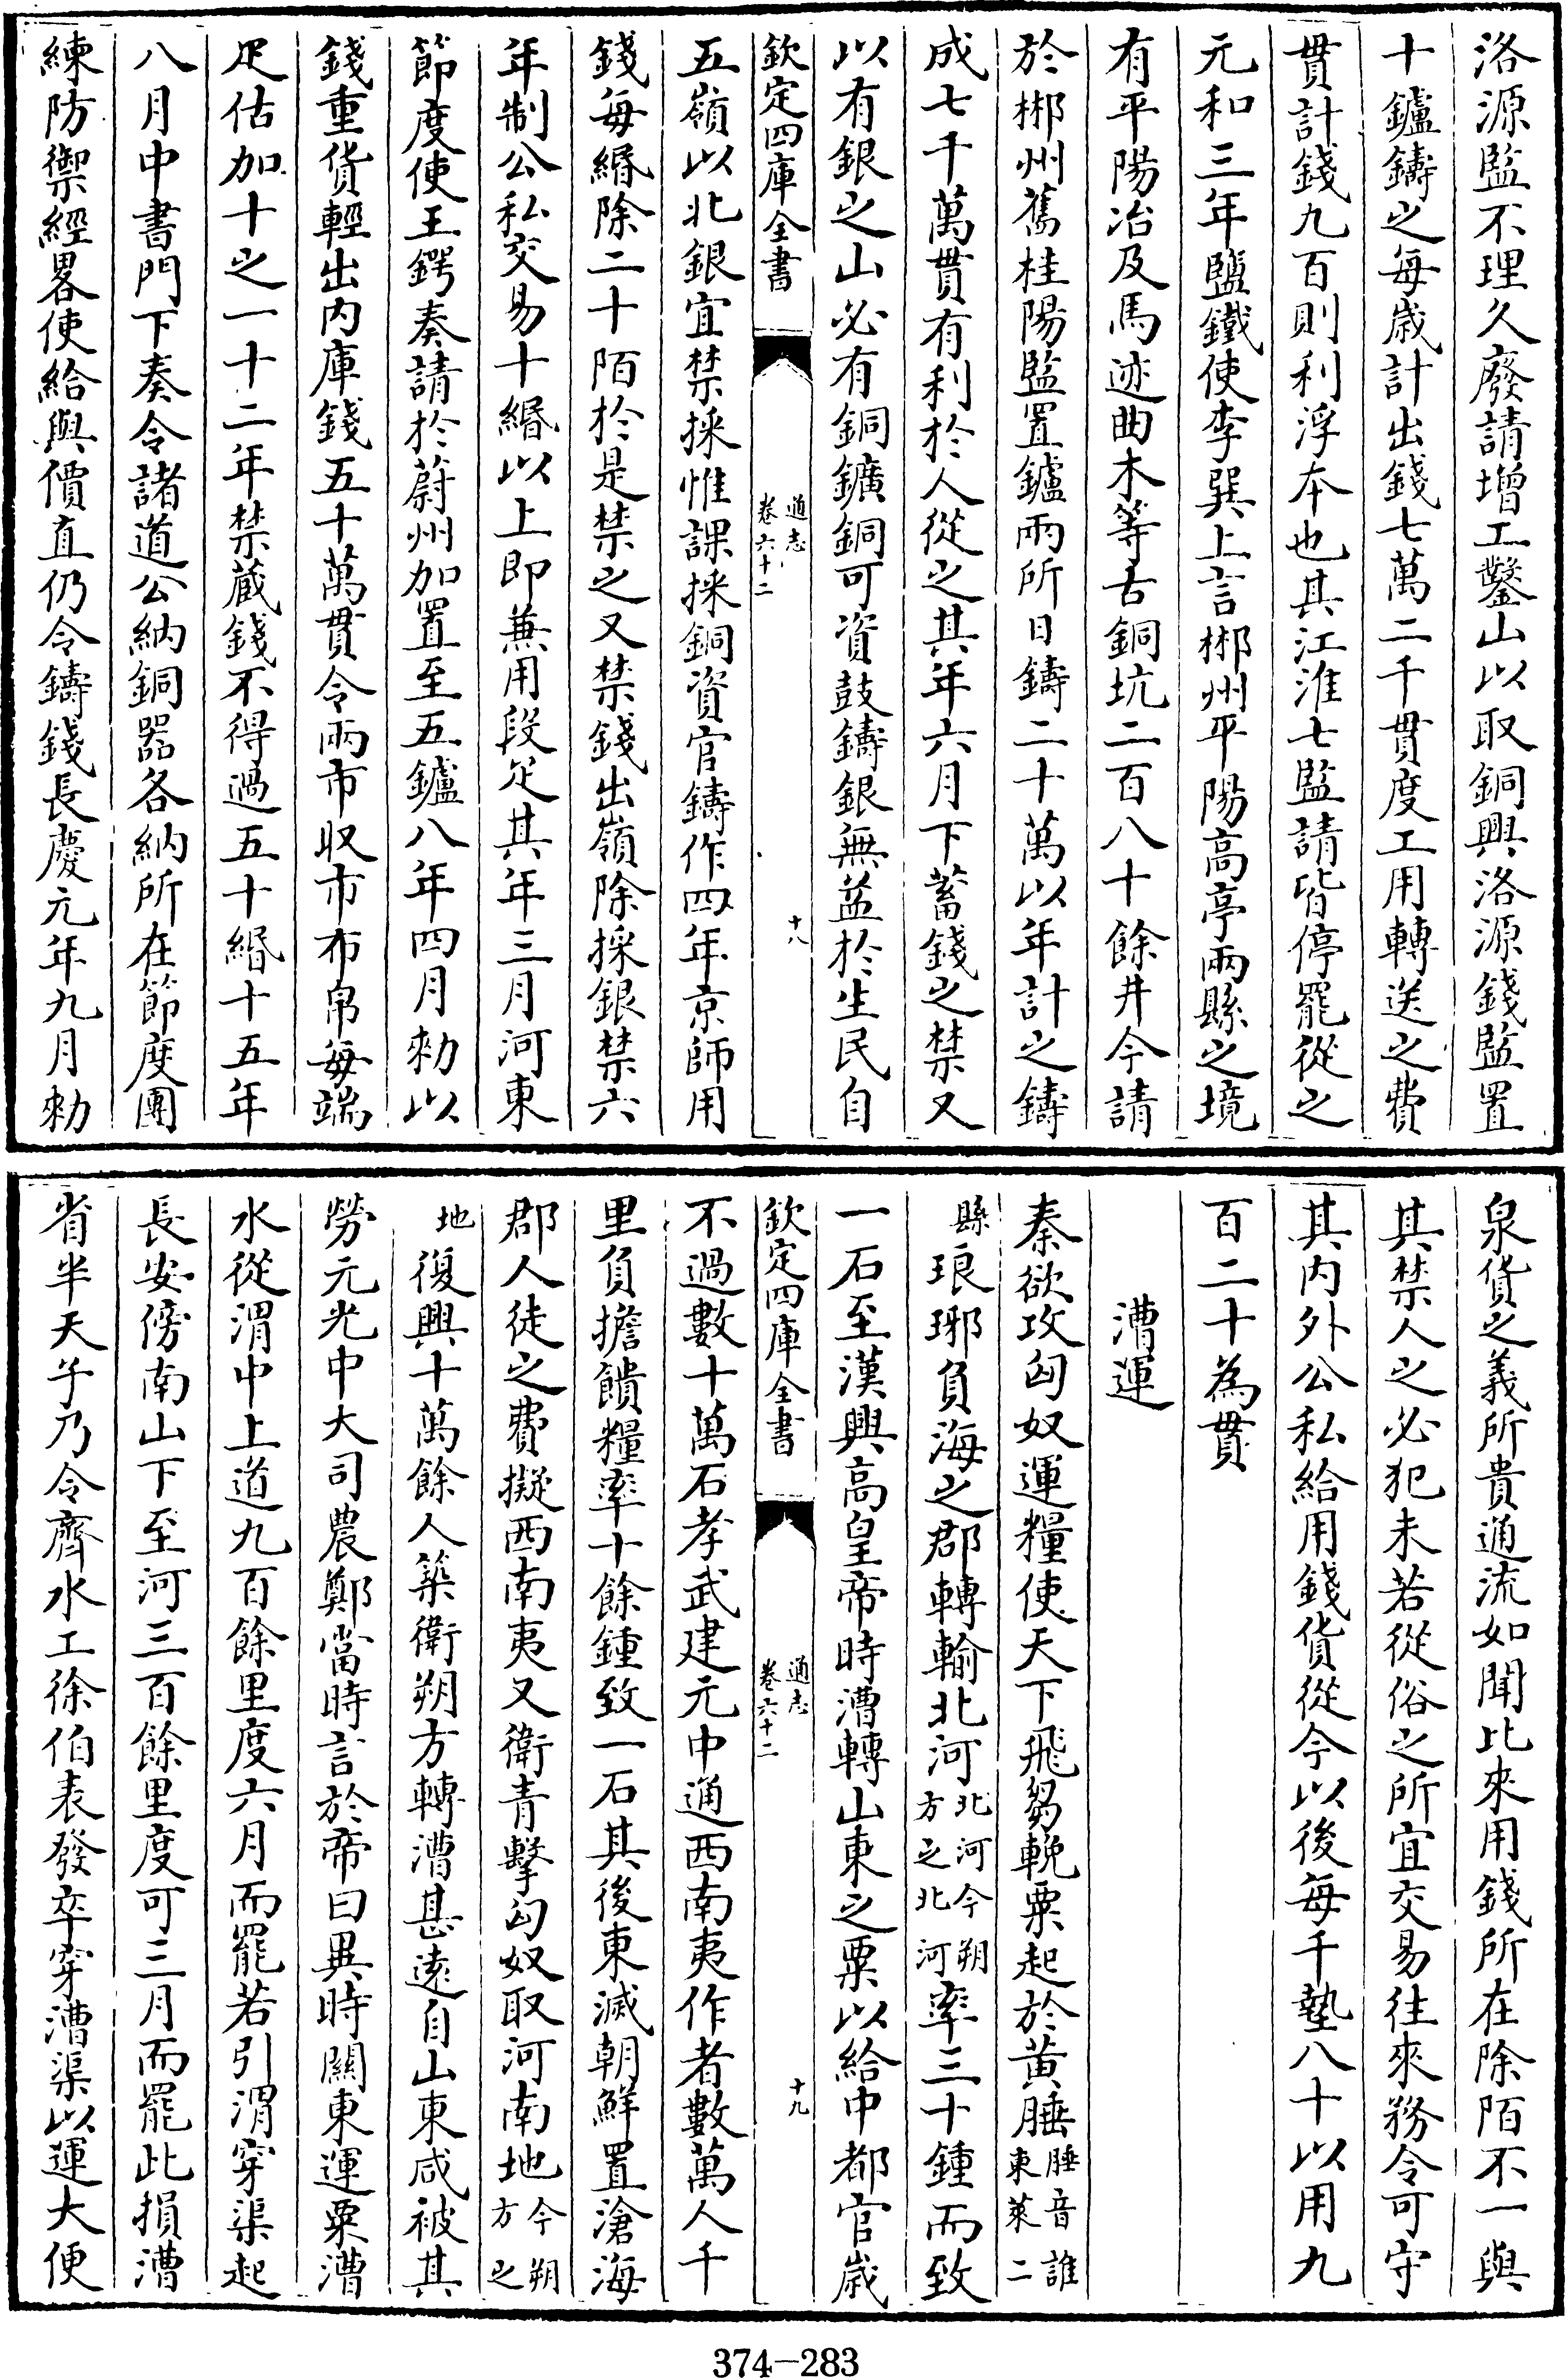 洛源監不理久廢請增工鑿山以取銅興洛源錢監置
十鑪鑄之每歲計出錢七萬二千貫度工用轉送之費
貫計錢九百則利浮本也其江淮七監請皆停罷從之
元和三年鹽鐵使李巽上言郴州平陽高亭兩縣之境
有平陽冶及馬迹曲木等古銅坑二百八十餘井今請
於郴州舊桂陽監置鑪兩所日鑄二十萬以年計之鑄
成七千萬貫有利於人從之其年六月下蓄錢之禁又
以有銀之山必有銅鑛銅可資鼓鑄銀無益於生民自
欽定四庫全書
通志
卷六十二
十八
五嶺以北銀宜禁採惟課採銅資官鑄作四年京師用
錢每緡除二十陌於是禁之又禁錢出嶺除採銀禁六
年制公私交易十緡以上即兼用段疋其年三月河東
節度使王鍔奏請於蔚州加置至五鑪八年四月勑以
錢重貨輕出内庫錢五十萬貫令兩市収市布帛每端
疋估加十之一十二年禁蔵錢不得過五十緡十五年
八月中書門下奏令諸道公納銅器各納所在節度團
練防禦經畧使給與價直仍令鑄錢長慶元年九月勑
泉貨之義所貴通流如聞比來用錢所在除陌不一與
其禁人之必犯未若從俗之所宜交易往來務令可守
其内外公私給用錢貨從今以後每千墊八十以用九
百二十為貫
漕運
秦欲攻匈奴運糧使天下飛芻輓粟起於黃腄腄音誰東萊二
縣琅琊負海之郡轉輸北河北河今朔方之北河率三十鍾而致
一石至漢興高皇帝時漕轉山東之粟以給中都官歲
欽定四庫全書
通志
卷六十二
十九
不過數十萬石孝武建元中通西南夷作者數萬人千
里負擔饋糧率十餘鍾致一石其後東滅朝鮮置滄海
郡人徒之費擬西南夷又衛青擊匈奴取河南地今朔方之
地復興十萬餘人築衛朔方轉漕甚逺自山東咸被其
勞元光中大司農鄭當時言於帝曰異時關東運粟漕
水從渭中上道九百餘里度六月而罷若引渭穿渠起
長安傍南山下至河三百餘里度可三月而罷此損漕
省半天子乃令齊水工徐伯表發卒穿漕渠以運大便
374-283